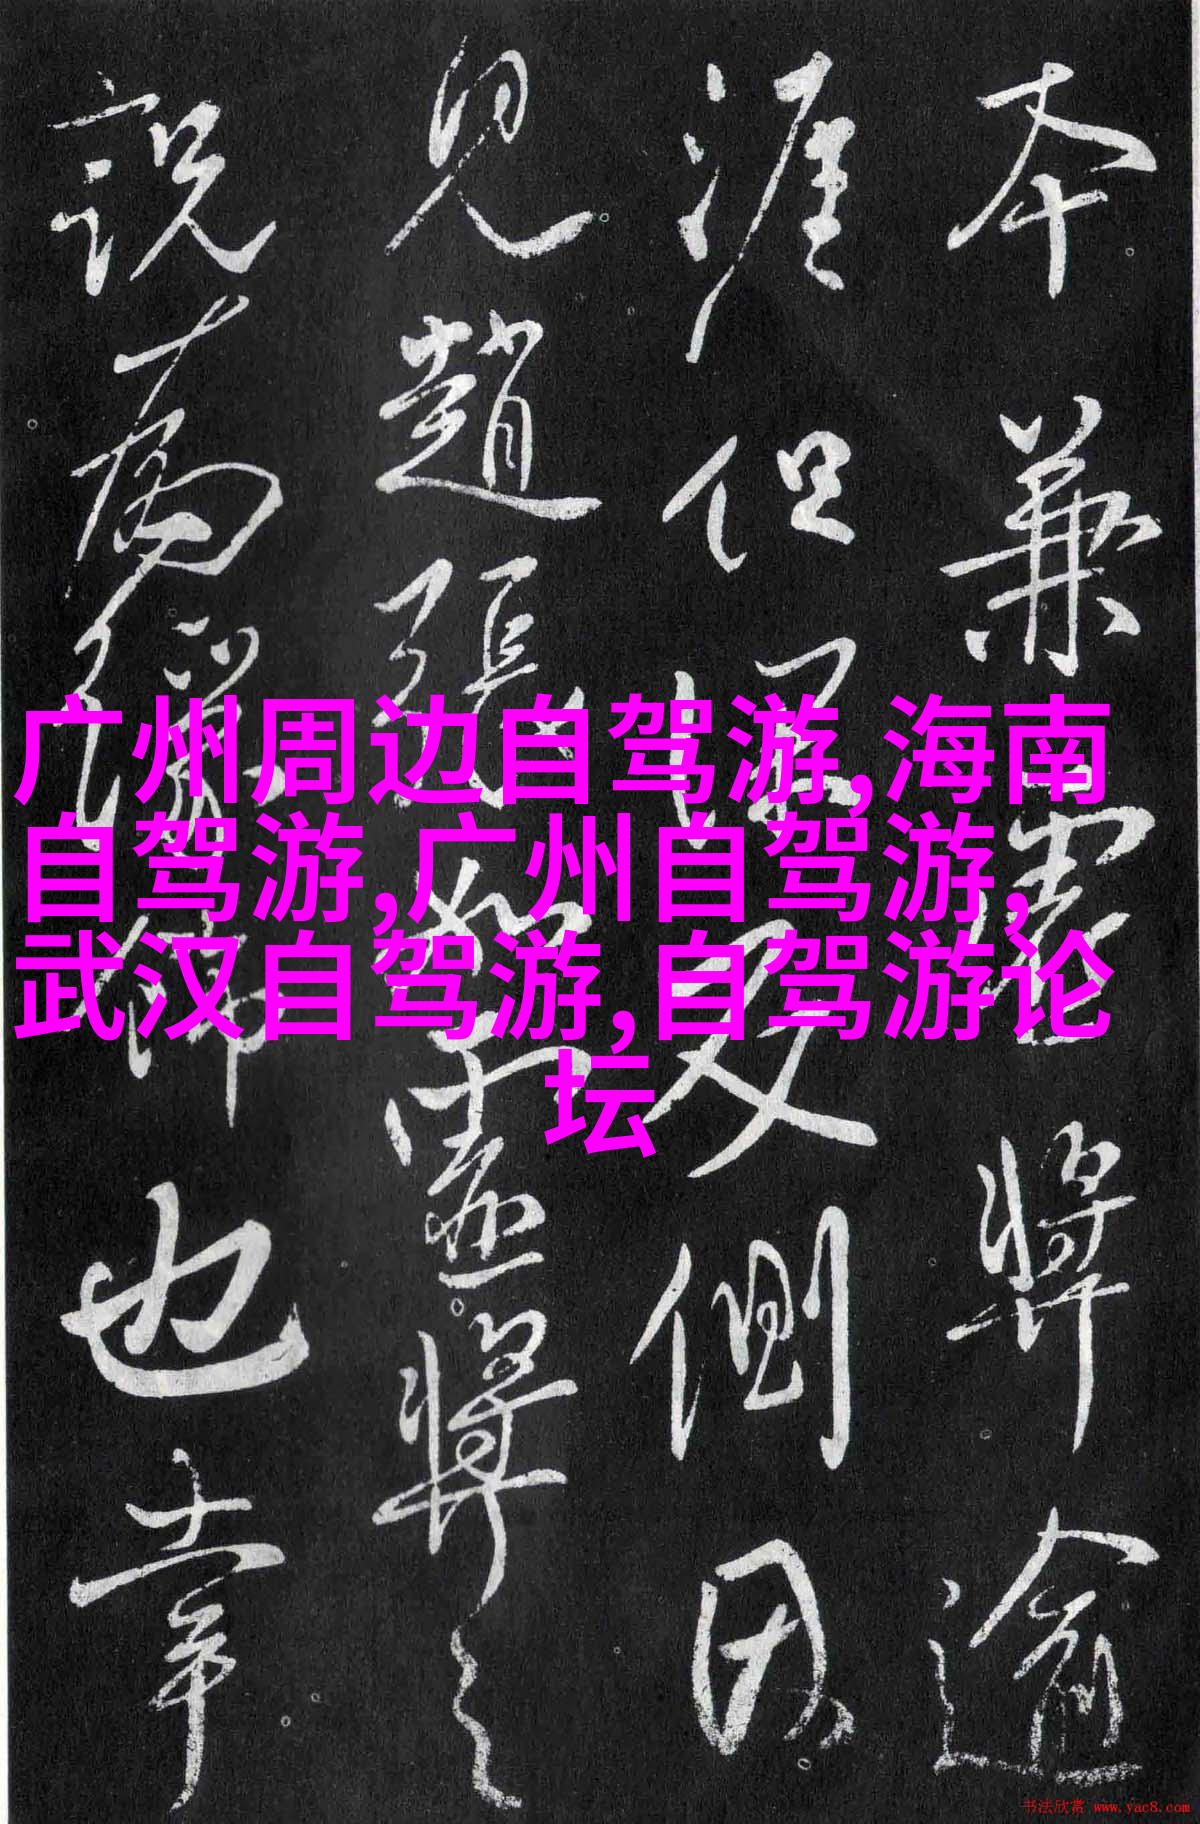 本兼要將逾
涯但 又側因
見趙張 草書將之
說 為 佛也幸
广州周边自驾游,海南
自驾游,广州自驾游,
武汉自驾游,自驾游论
坛
书法欣赏 www.yac8.com